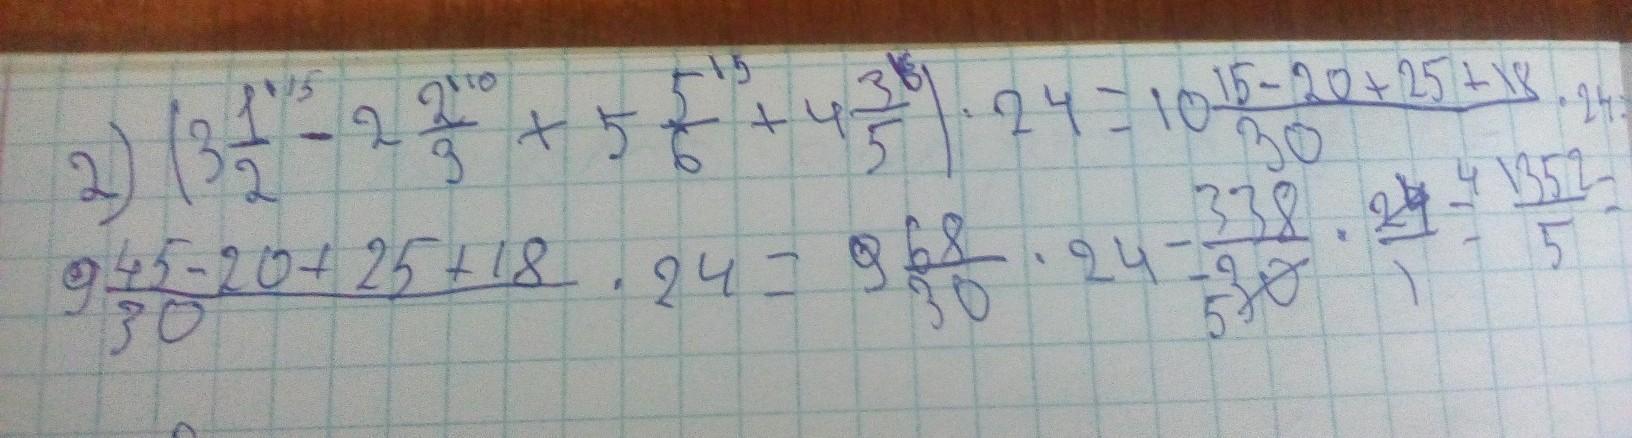 2) (3 1/2 ·15 − 2 2/3 ·10 + 5 5/6 ·5 + 4 3/5 ·6) · 24 = 10 (15−20+25+18)/30 · 24 =
9 (45−20+25+18)/30 · 24 = 9 68/30 · 24 = 338/30 5 · 24/1 4 = 1352/5 =